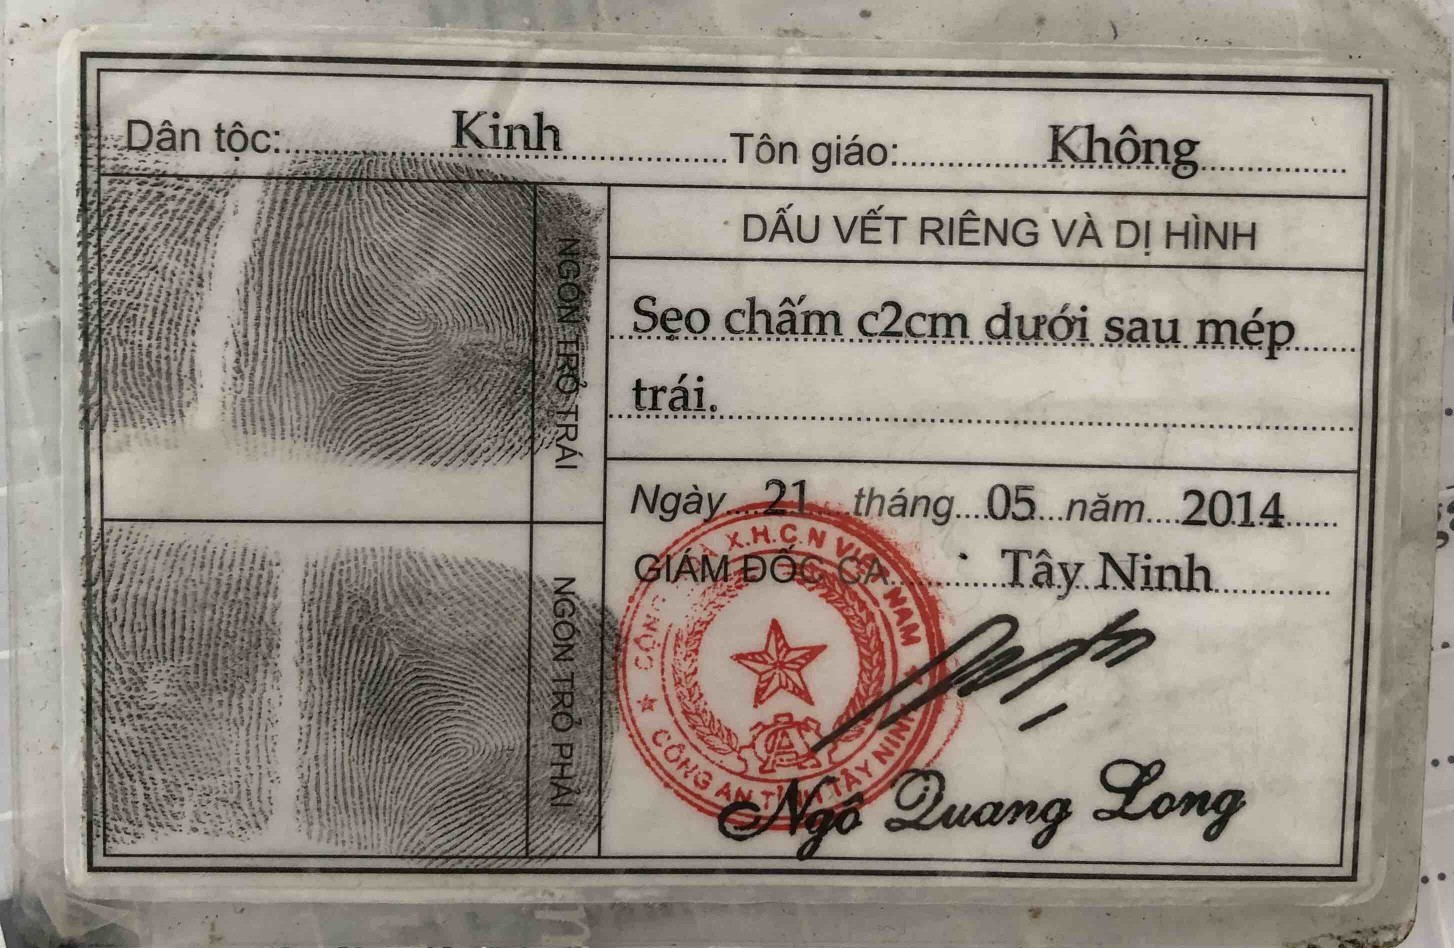 Dân tộc: Kinh Tôn giáo: Không
NGÓN TRỎ TRÁI
NGÓN TRỎ PHẢI
DẤU VẾT RIÊNG VÀ DỊ HÌNH
Sẹo chấm c2cm dưới sau mép
trái.
Ngày 21 tháng 05 năm 2014
GIÁM ĐỐC CA Tây Ninh
X.H.C.N VIỆT NAM
CÔNG AN TỈNH TÂY NINH
Ngô Quang Long